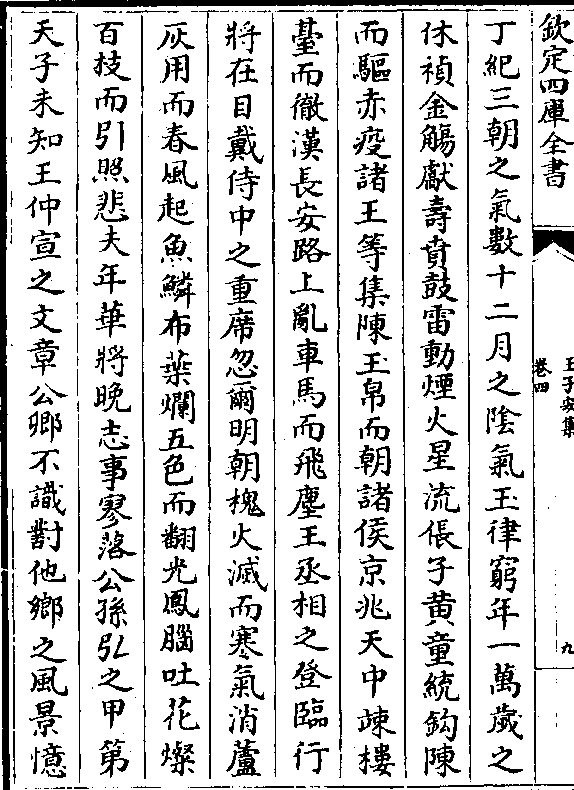 欽定四庫全書
王子安集
卷四
九
丁紀三朝之氣數十二月之陰氣玉律窮年一萬歲之
休禎金觴獻壽賁鼓雷動煙火星流侲子黄童統鈎陳
而驅赤疫諸王等集陳玉帛而朝諸侯京兆天中疎樓
䑓而徹漢長安路上亂車馬而飛塵王丞相之登臨行
將在目戴侍中之重席忽爾明朝槐火滅而寒氣消蘆
灰用而春風起魚鱗布藥爛五色而翻光鳳腦吐花燦
百技而引照悲夫年華將晚志事寥落公孫弘之甲第
天子未知王仲宣之文章公卿不識對他鄉之風景憶